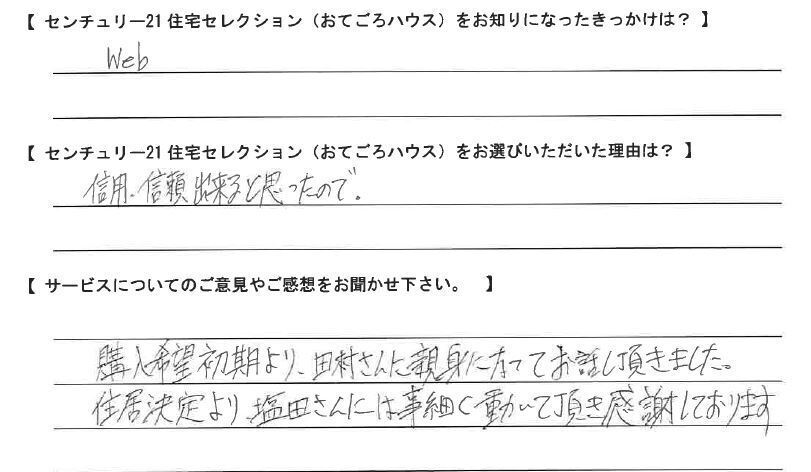 【 センチュリー21 住宅セレクション（おてごろハウス）をお知りになったきっかけは？ 】
Web
【 センチュリー21 住宅セレクション（おてごろハウス）をお選びいただいた理由は？ 】
信用、信頼出来ると思ったので。
【 サービスについてのご意見やご感想をお聞かせ下さい。 】
購入希望初期より、田村さんに親身になってお話し頂きました。
住居決定より、塩田さんには事細く動いて頂き感謝しております